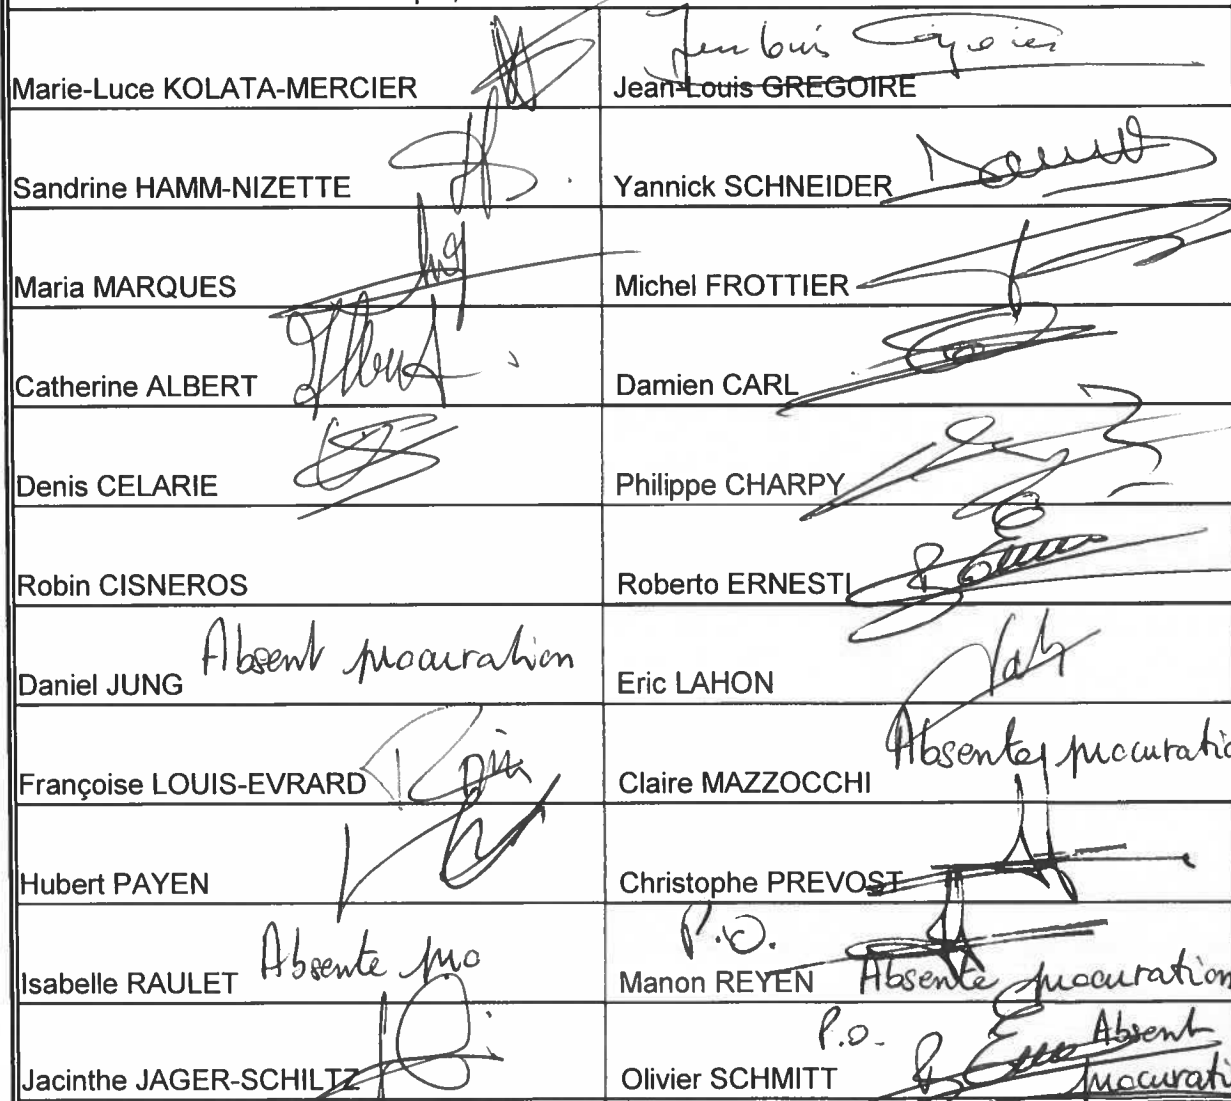 Marie-Luce KOLATA-MERCIER
Jean-Louis GREGOIRE
Sandrine HAMM-NIZETTE
Yannick SCHNEIDER
Maria MARQUES
Michel FROTTIER
Catherine ALBERT Albert
Damien CARL
Denis CELARIE
Philippe CHARPY
Robin CISNEROS
Roberto ERNESTI
Daniel JUNG Absent procuration
Eric LAHON
Françoise LOUIS-EVRARD
Claire MAZZOCCHI Absente procuratio
Hubert PAYEN
Christophe PREVOST
Isabelle RAULET Absente pro
P.O.
Manon REYEN Absente procuration
Jacinthe JAGER-SCHILTZ
P.O. Absent
Olivier SCHMITT procurati